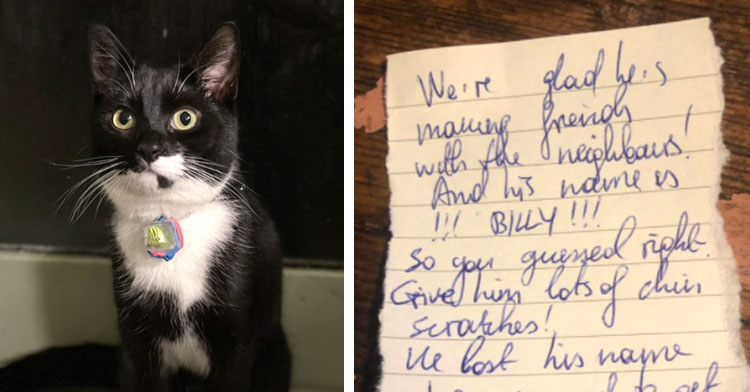 We're glad he's
making friends
with the neighbours!
And his name is
!!! BILLY !!!
So you guessed right.
Give him lots of chin
scratches!
He lost his name